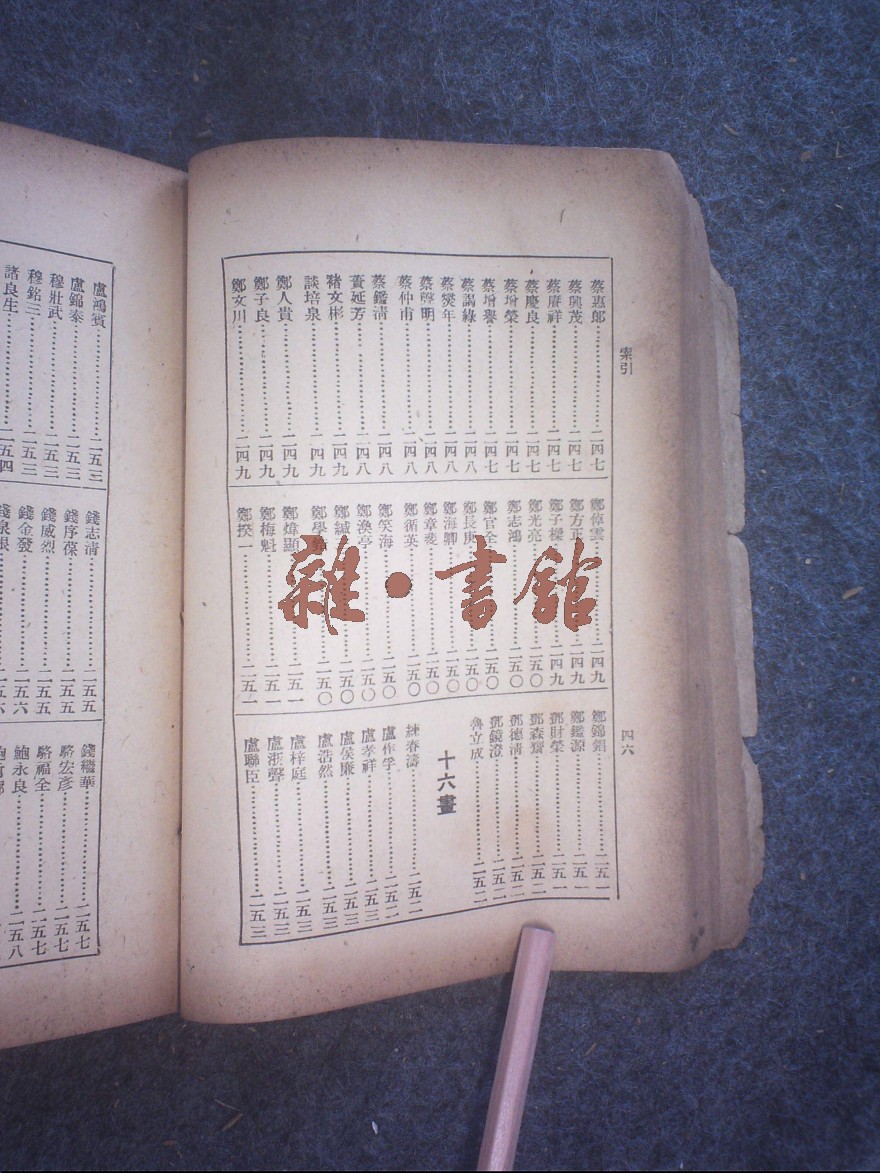 索引
四六
蔡惠郎…………二四七
蔡興茂…………二四七
蔡賡祥…………二四七
蔡慶良…………二四七
蔡增榮…………二四七
蔡增譽…………二四七
蔡謁綠…………二四八
蔡爕年…………二四八
蔡聲明…………二四八
蔡仲甫…………二四八
蔡鑑清…………二四八
蕢延芳…………二四八
豬文彬…………二四九
談培泉…………二四九
鄭人貴…………二四九
鄭子良…………二四九
鄭文川…………二四九
鄭偉雲…………二四九
鄭方正…………二四九
鄭子樑…………二四九
鄭光亮…………二五〇
鄭志鴻…………二五〇
鄭官全…………二五〇
鄭長庚…………二五〇
鄭海卿…………二五〇
鄭章斐…………二五〇
鄭循英…………二五〇
鄭笑海…………二五〇
鄭渙亭…………二五〇
鄭緘…………二五〇
鄭學…………二五〇
鄭煒顯…………二五一
鄭梅魁…………二五一
鄭揆一…………二五一
鄭錦錩…………二五一
鄭鑑源…………二五一
鄧財榮…………二五一
鄧森寶…………二五二
鄧德清…………二五二
鄧鏡澄…………二五二
魯立成…………二五二
十六畫
練春濤…………二五二
盧作孚…………二五二
盧孝祥…………二五三
盧侯廉…………二五三
盧浩然…………二五三
盧梓庭…………二五三
盧浙聲…………二五三
盧聯臣…………二五三
盧鴻賓…………二五三
盧錦泰…………二五三
穆壯武…………二五三
穆銘三…………二五三
諸良生…………二五四
錢志清…………二五五
錢序葆…………二五五
錢威烈…………二五五
錢金發…………二五六
錢繼華…………二五七
駱宏彥…………二五七
駱福全…………二五七
鮑永良…………二五八
雜·書館